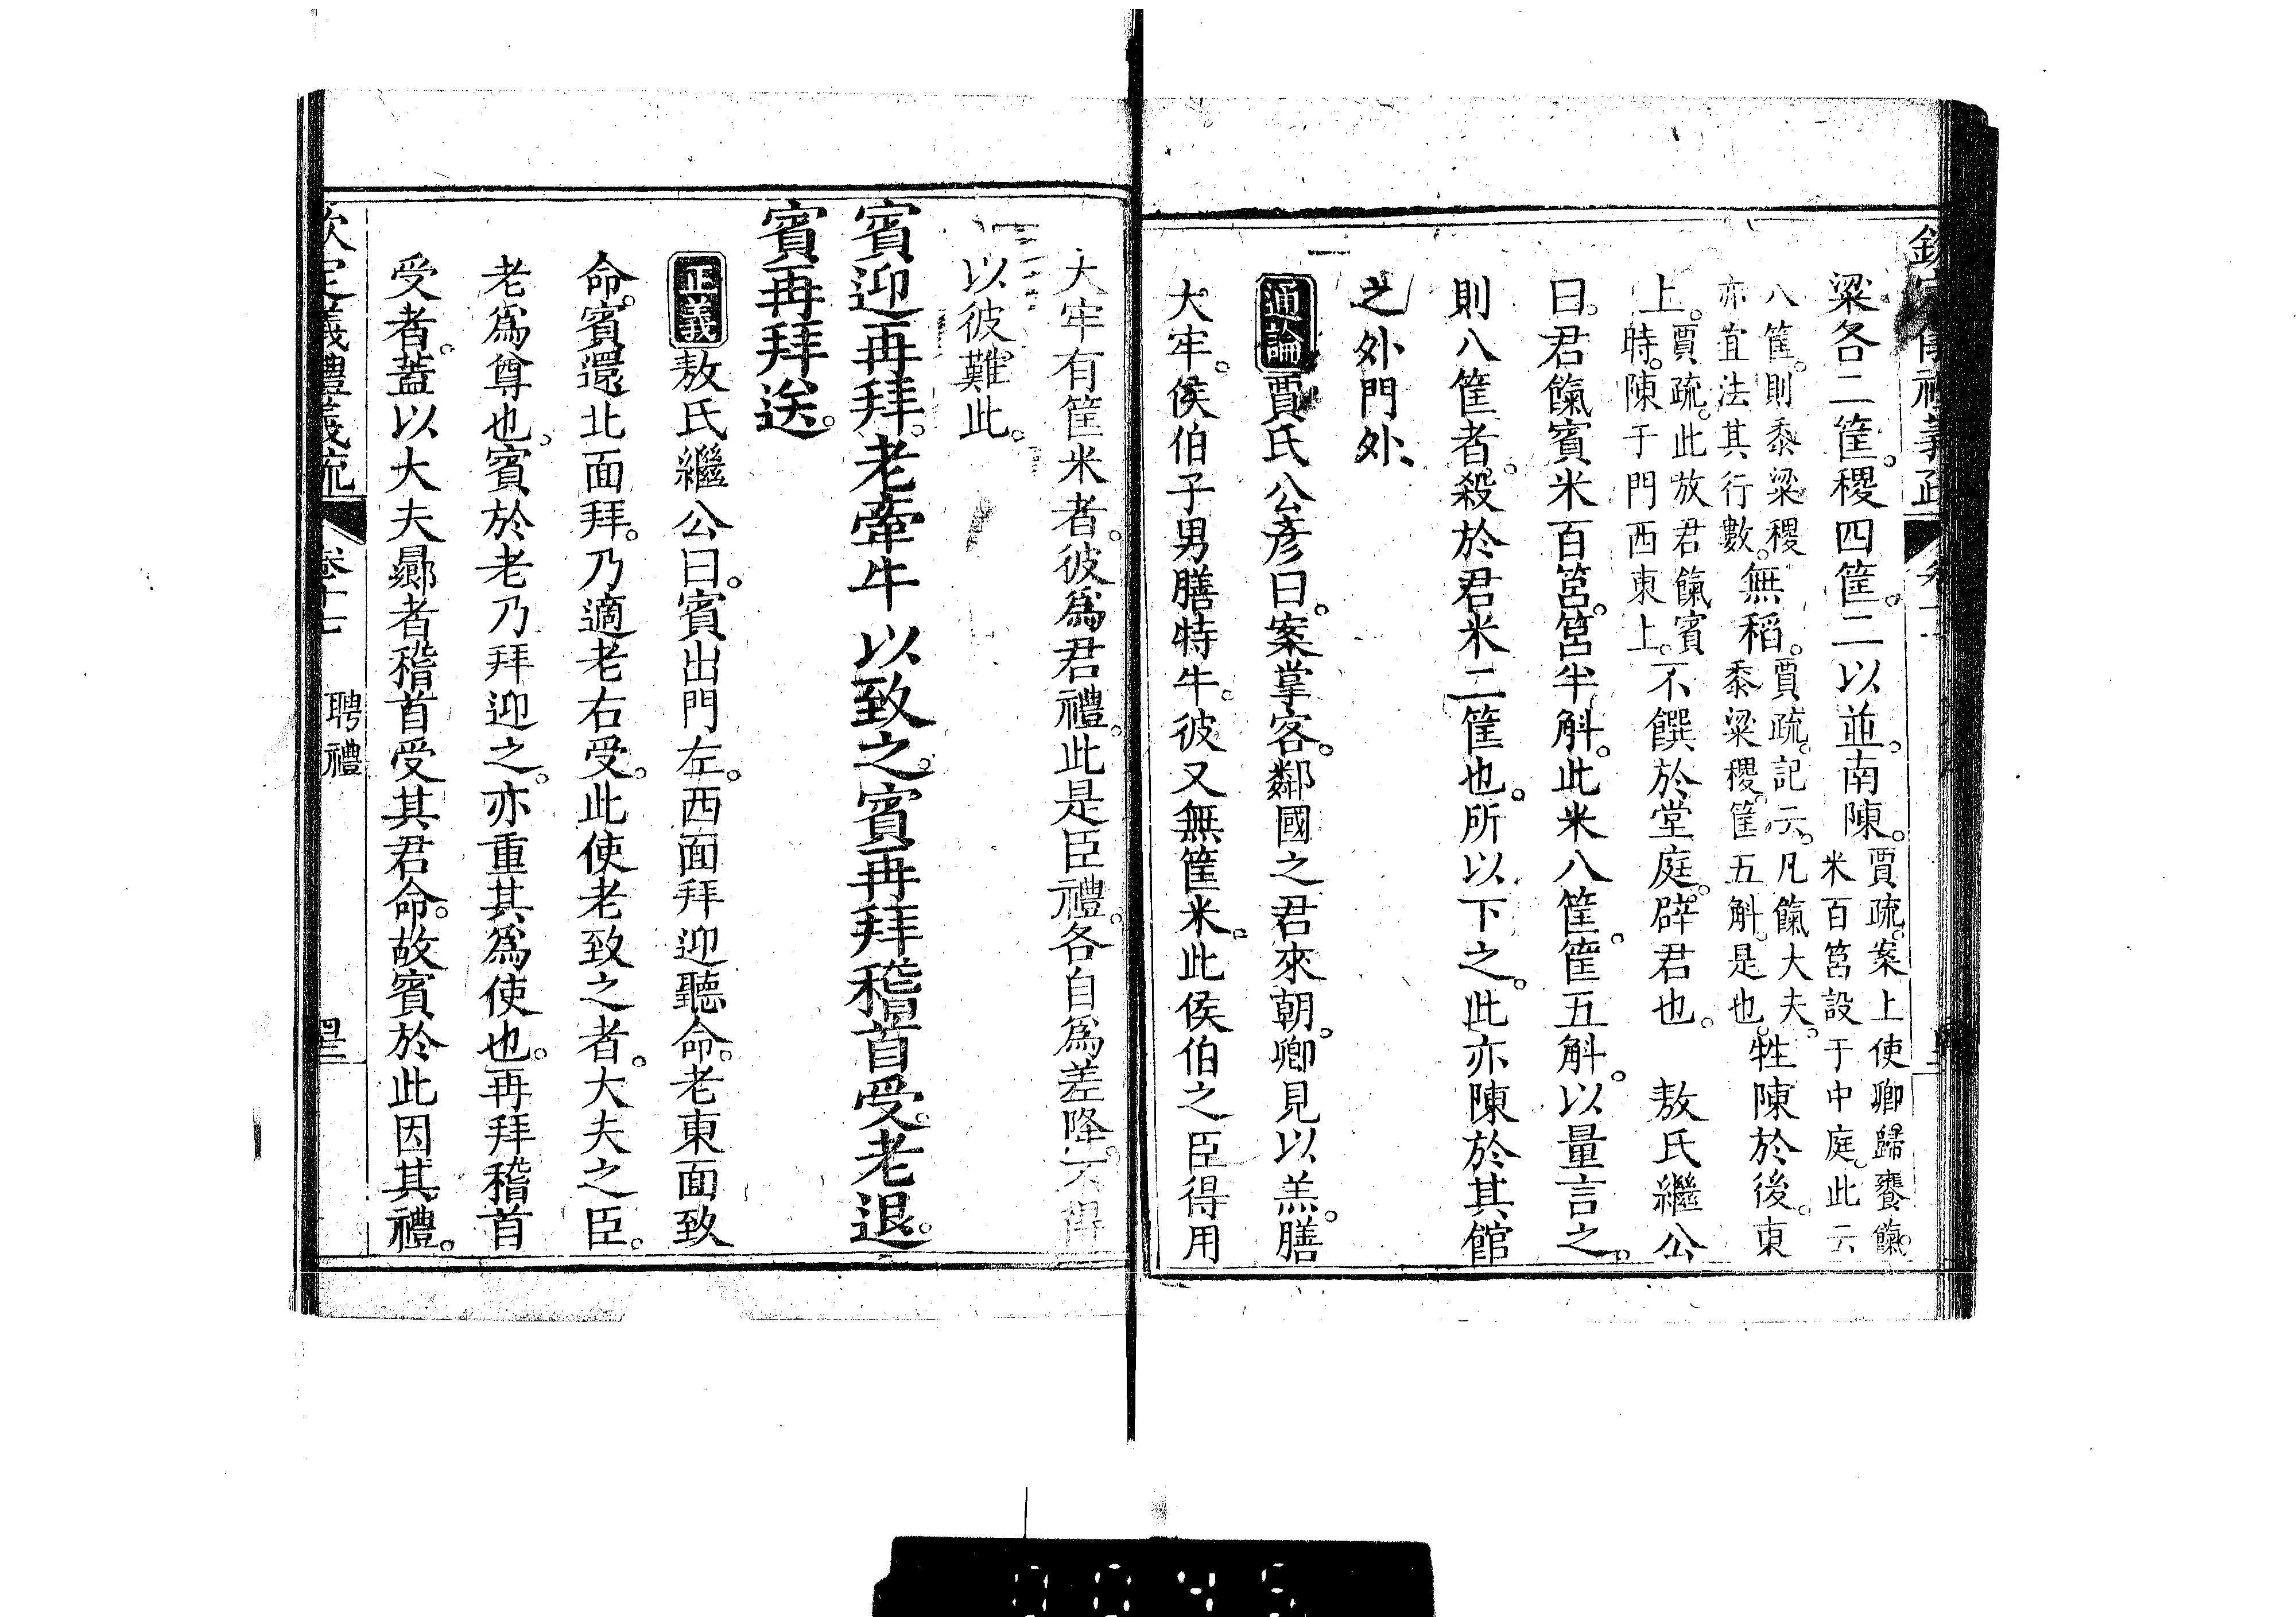 欽定儀禮義疏
粱各二筐。稷四筐。二以並。南陳。賈疏。案上使卿歸饔餼。米百筥設于中庭。此云
八筐。則黍粱稷亦宜法其行數。無稻。賈疏。記云。凡餼大夫。黍粱稷。筐五斛。是也。牲陳於後。東
上。賈疏。此放君餼賓時。陳于門西東上。不饌於堂庭。辟君也。 敖氏繼公
曰。君餼賓米百筥。筥半斛。此米八筐。筐五斛。以量言之。
則八筐者。殺於君米二筐也。所以下之。此亦陳於其館
之外門外。
通論賈氏公彥曰。案掌客。鄰國之君來朝。卿見以羔。膳
大牢。侯伯子男膳特牛。彼又無筐米。此侯伯之臣得用
大牢有筐米者。彼爲君禮。此是臣禮。各自爲差降。不得
以彼難此。
賓迎再拜。老牽牛以致之。賓再拜稽首受。老退。
賓再拜送。
正義敖氏繼公曰。賓出門左。西面拜迎聽命。老東面致
命。賓還北面拜。乃適老右受。此使老致之者。大夫之臣。
老爲尊也。賓於老乃拜迎之。亦重其爲使也。再拜稽首
受者。蓋以大夫曏者稽首受其君命。故賓於此因其禮。
欽定儀禮義疏 卷十七 聘禮 四三